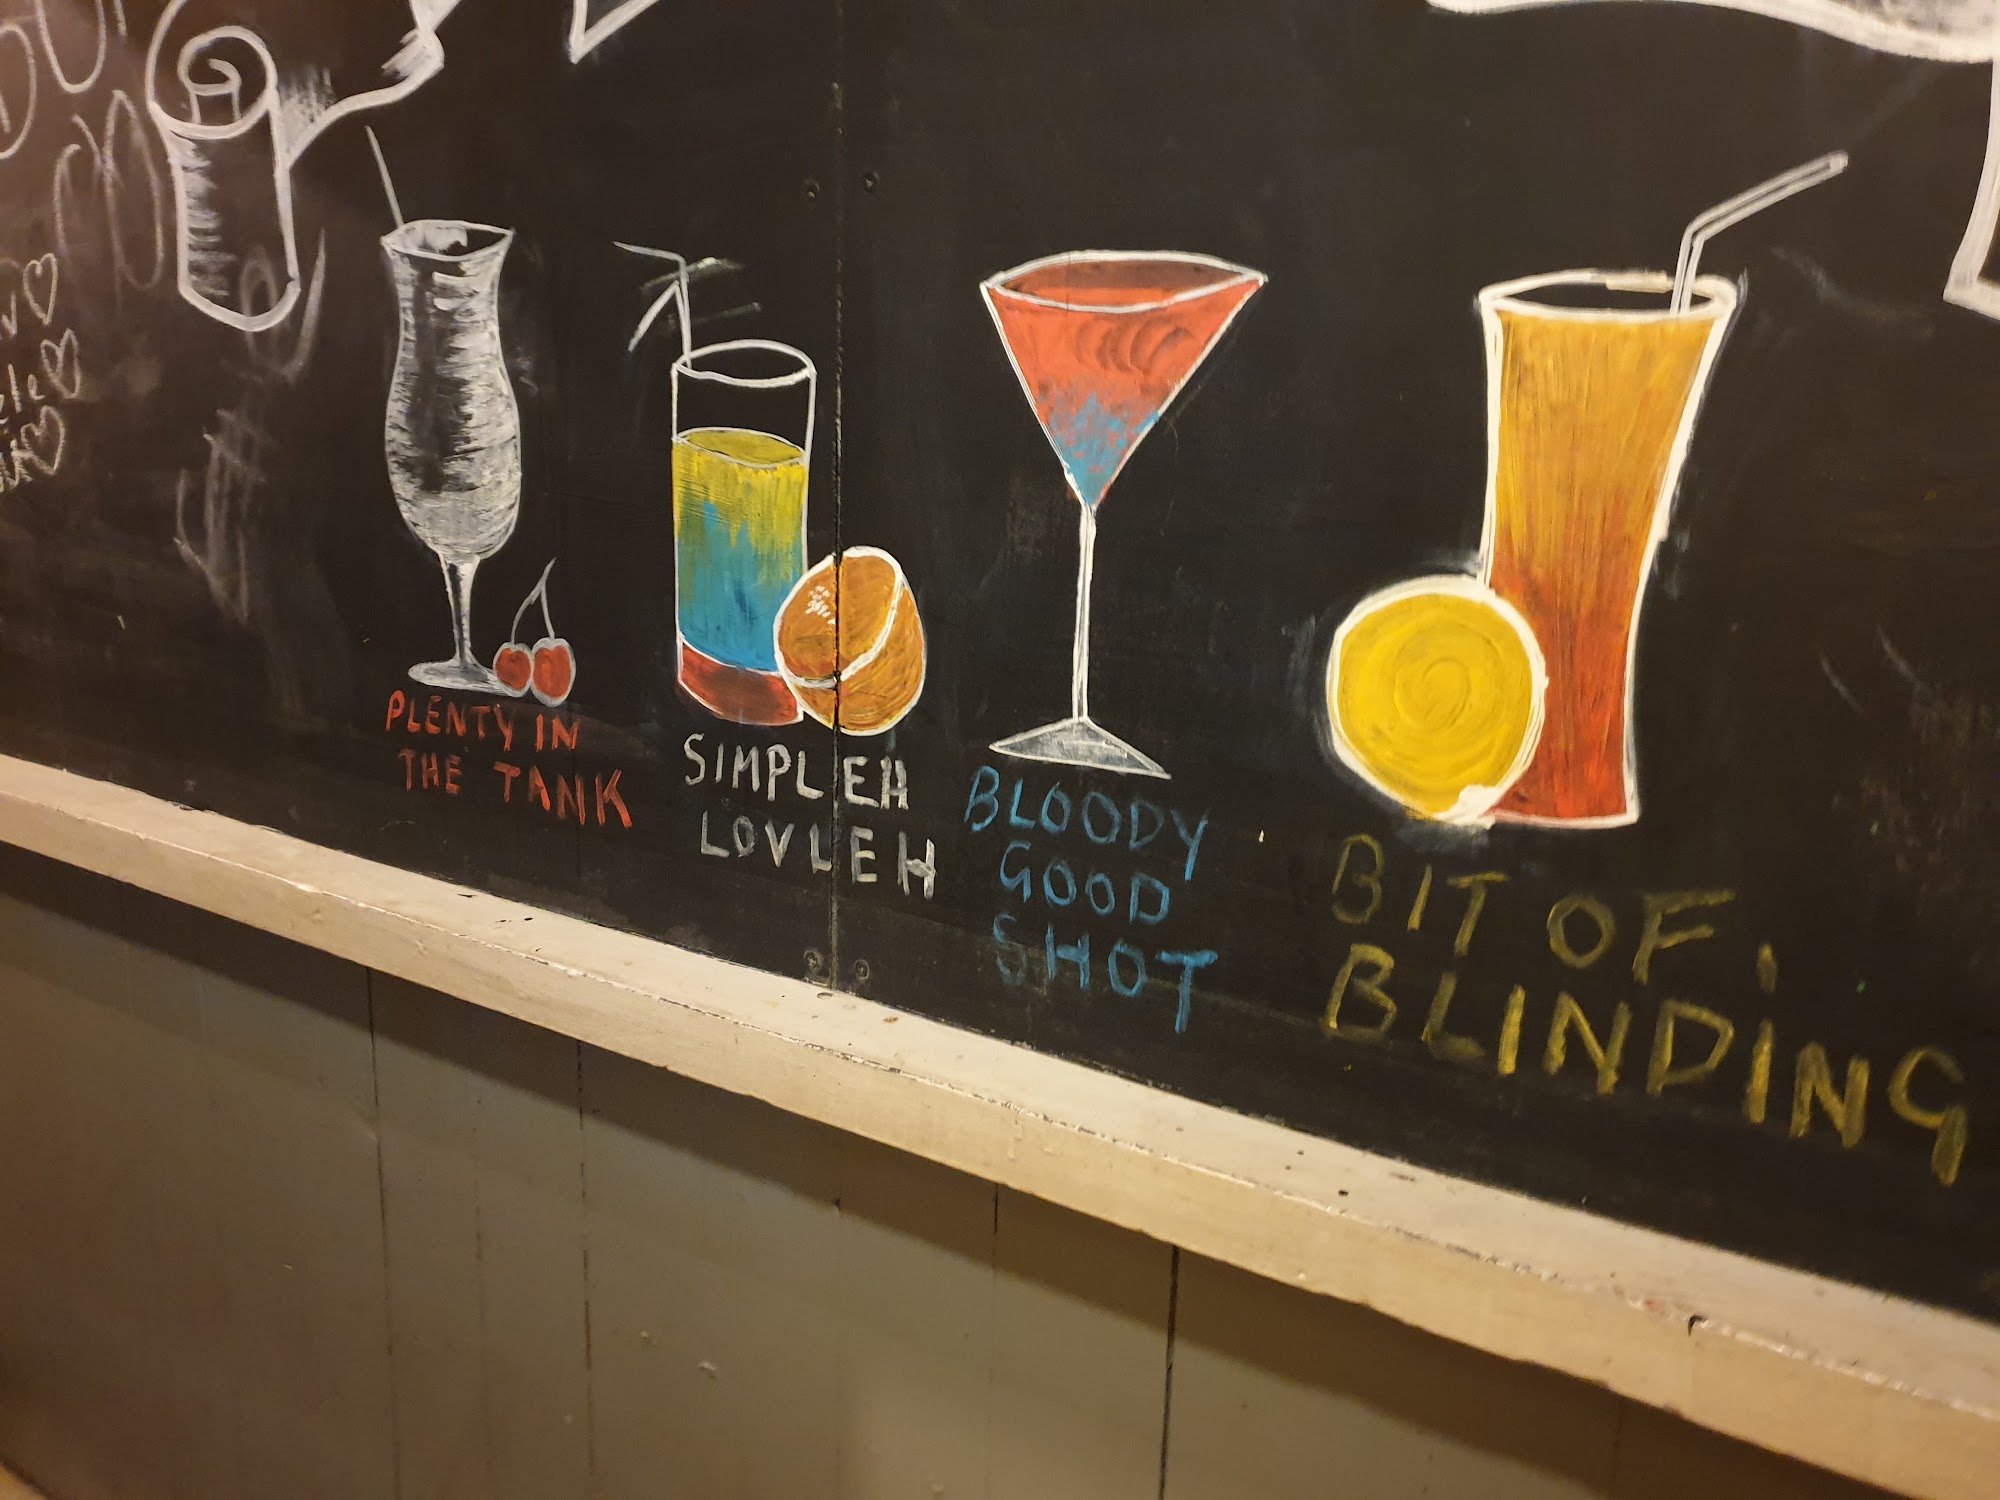 PLENTY IN
THE TANK
SIMPLEH
LOVLEH
BLOODY
GOOD
SHOT
BIT OF
BLINDING